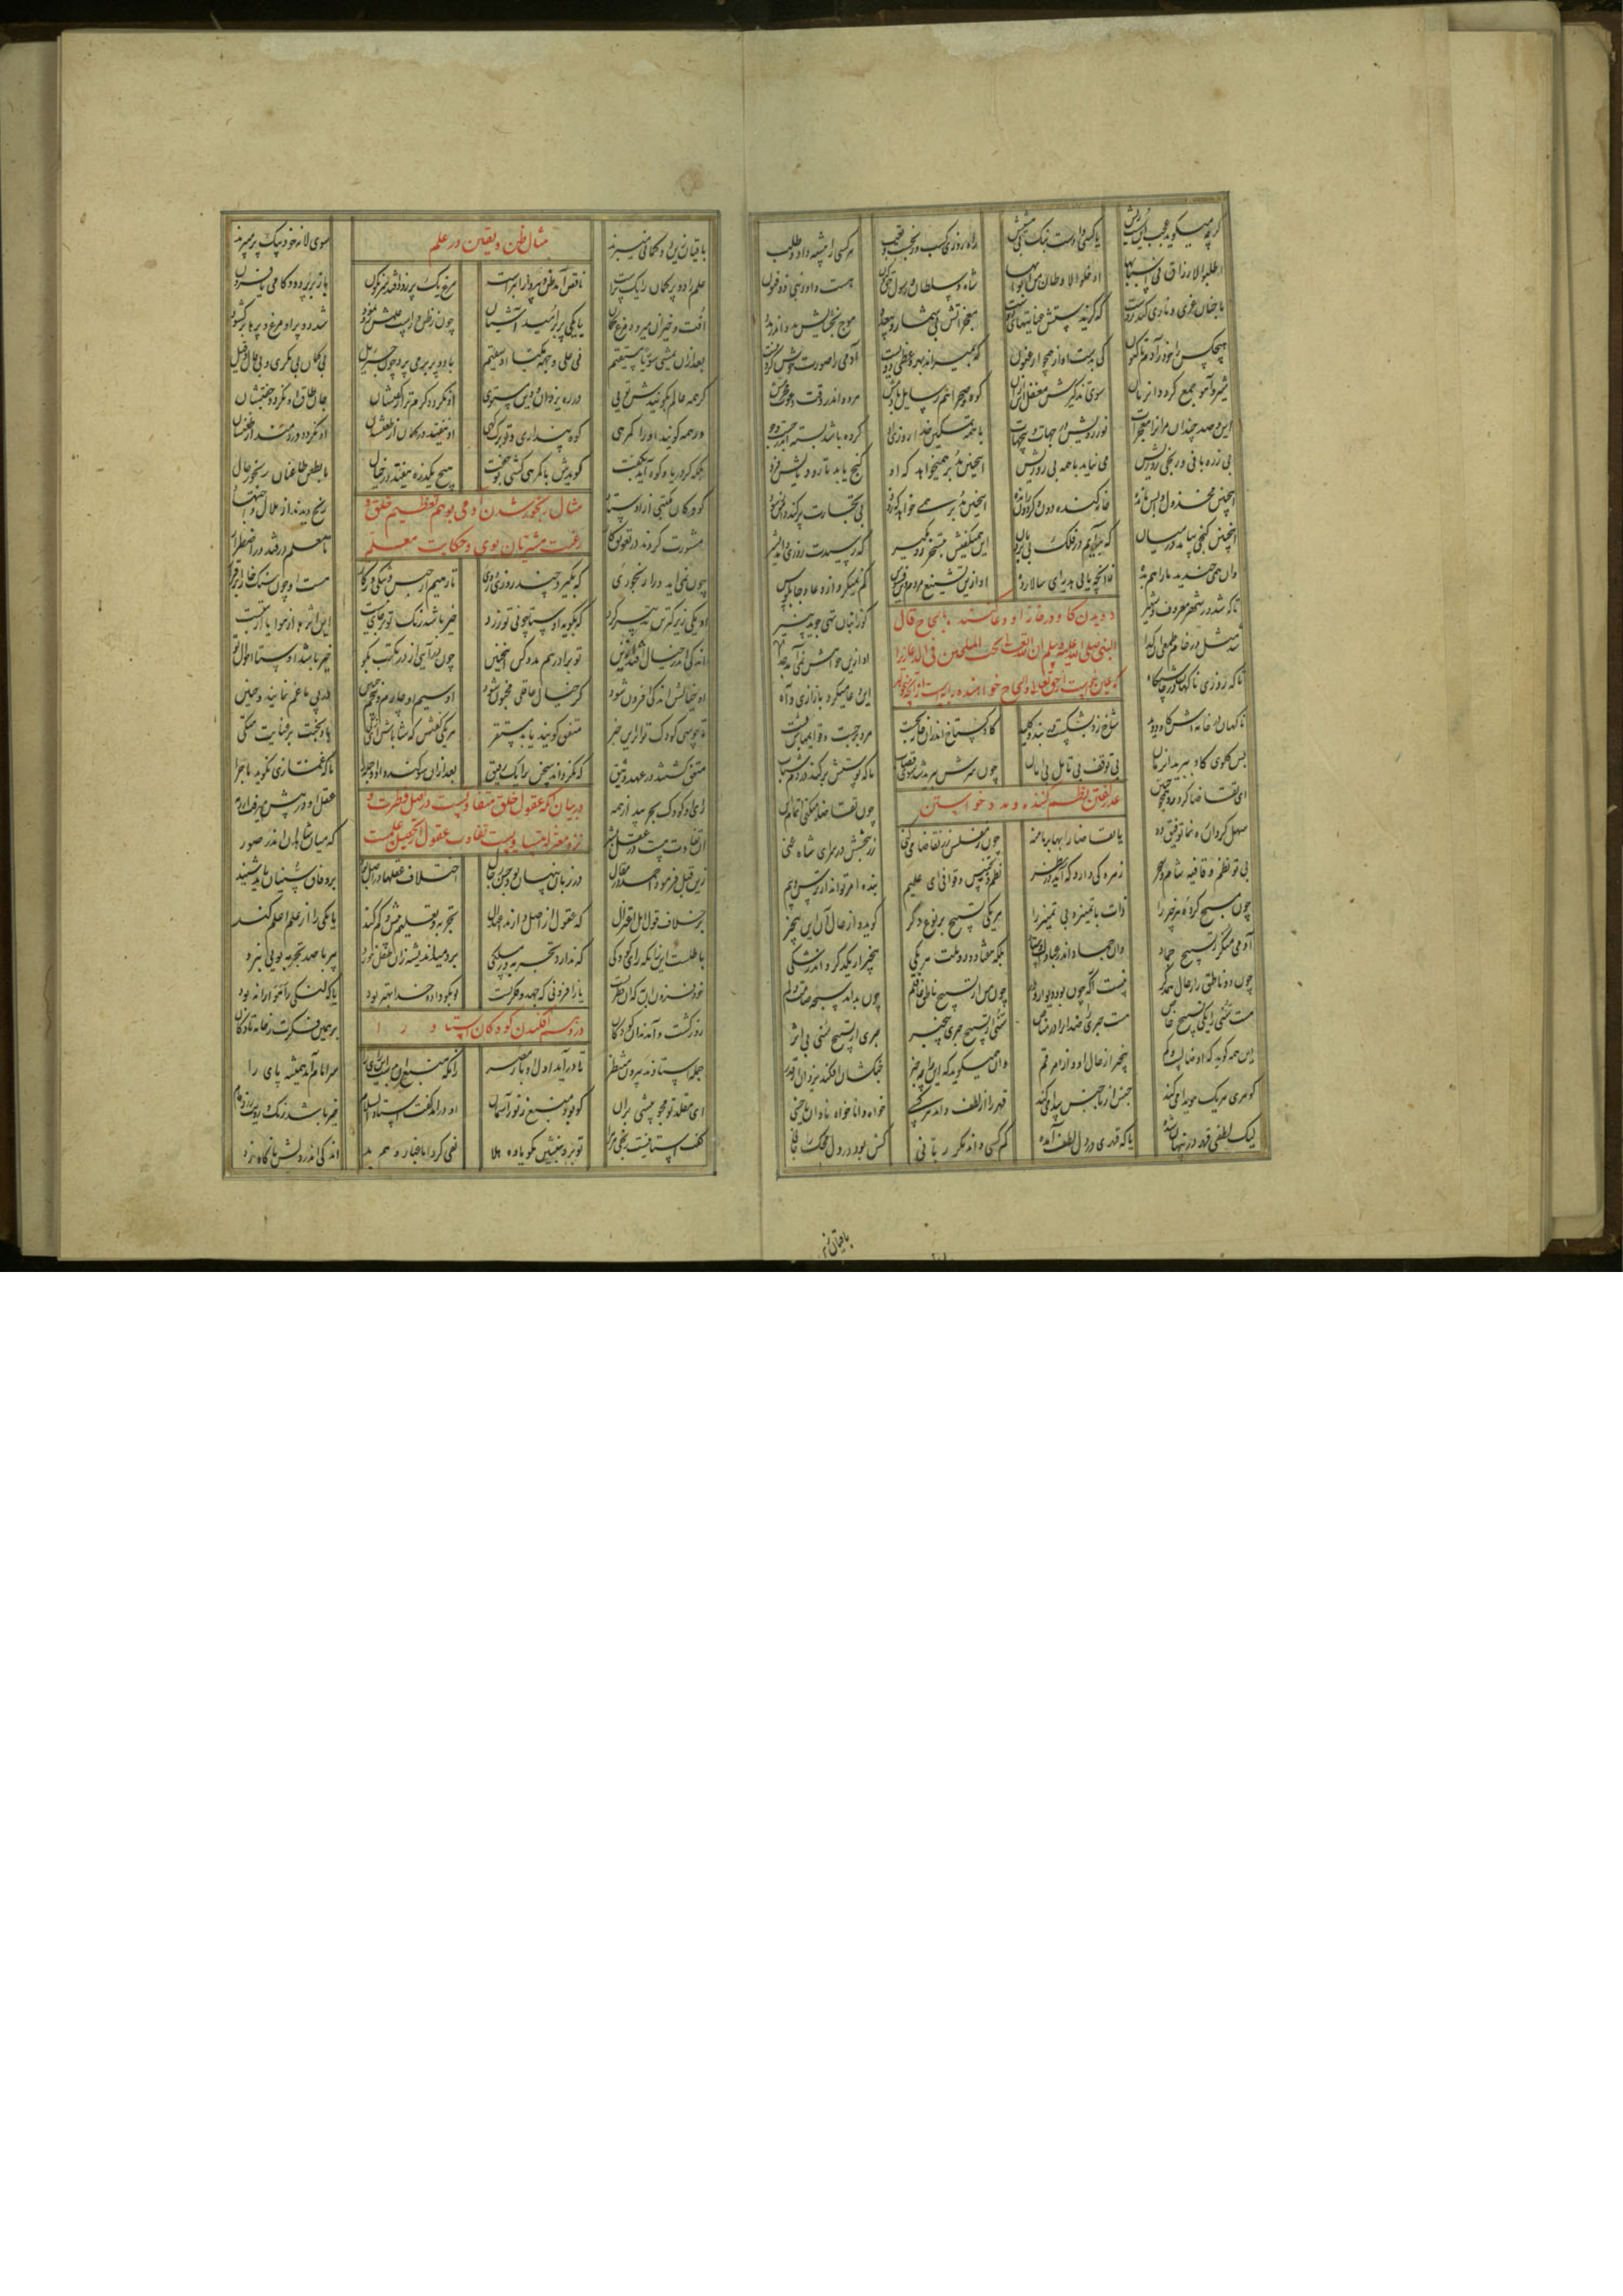 کو چه میگوید عجب این سست ریش یا کسی دادست بنگ بی هشیش راه روزی کسب و رنجست و تعب هر کسی را پیشه داد و طلب
اطلبوا الارزاق فی اسبابها ادخلوا الاوطان من ابوابها شاه و سلطان و رسول حق کنون هست داود نبی ذوفنون
با چنان عزی و نازی کاندروست که گزیدستش عنایتهای دوست معجزاتش بی شمار و بی عدد موج بخشایش مدد اندر مدد
هیچکس را خود ز آدم تا کنون کی بدست آواز همچو ارغنون که بمیراند بهر وعظی دویست آدمی را صوت خوبش کرد نیست
شیر و آهو جمع گردد آن زمان سوی تذکیرش مغفل این از آن کوه و صحرا هم رسایل با دمش مرده اندر وقت دعوت محرمش
این و صد چندان مرو را معجزات نور رویش در جهات و بی جهات با همه تمکین خدا روزی او کرده باشد بسته اندر جست و جو
بی زره بافی و رنجی روزیش می نیاید با همه پیروزیش اینچنین مدبر همیخواهد که او گنج یابد تا رود
اینچنین مخذول واپس مانده خانه کنده دون و گردون رانده اینچنین مدبر همی خواهد که زود بی تجارت پر کند دامن ز سود
اینچنین گنجی بیامد در میان که برآیم بر فلک بی نردبان این همیگفتش بتسخر رو بگیر که رسیدت روزی و آمد بشیر
وان همی خندید ما را هم بده زانچه یابی هدیه ای سالار ده او ازین تشنیع مردم وین فسوس کم نمیکرد از دعا و چاپلوس
تا که شد در شهر معروف و شهیر کو ز انبان تهی جوید پنیر
شد مثل در خام طمعی آن گدا او ازین خواهش نمی آمد جدا
تا که روزی ناگهان در چاشتگاه این دعا میکرد با زاری و آه
دویدن گاو در خانه او دعا کننده بالحاح قال
النبی صلی الله علیه وسلم ان الله تعالی یحب الملحین فی الدعا زیرا
ناگهان در خانه اش گاوی دوید شاخ زد بشکست در بند و کلید گاو گستاخ اندران خانه بجست مرد برجست و قوایمهاش بست
پس گلوی گاو ببرید آن زمان بی توقف بی تامل بی امان چون سرش ببرید شد سوی قصاب تا که پوستش برکند در دم شتاب
عذر گفتن نظم کننده و مدد خواستن
ای تقاضا گر درون همچون جنین چون تقاضا میکنی اتمام این
سهل گردان ره نما توفیق ده یا تقاضا را بهل بر ما منه چون ز مفلس زر تقاضا میکنی زر ببخشش در سر ای شاه غنی
بی تو نظم و قافیه شام و سحر زهره کی دارد که آید در نظر نظم و تجنیس و قوافی ای علیم بنده امر تواند از ترس و بیم
چون مسبح کرده هر چیز را ذات با تمییز و بی تمییز را هر یکی تسبیح بر نوع دگر گوید و از حال آن این بیخبر
آدمی منکر ز تسبیح جماد وان جماد اندر عبادت اوستاد بلکه هفتاد و دو ملت هر یکی بیخبر از یکدگر و اندر شکی
چون دو ناطق را ز حال همدگر نیست آگه چون بود دیوار و در چون من از تسبیح ناطق غافلم چون بداند سبحه صامت دلم
هست سنی را یکی تسبیح خاص هست جبری را ضد آن در مناص سنی از تسبیح جبری بیخبر جبری از تسبیح سنی بی اثر
این همی گوید که او ضالست و گم بیخبر از حال او وز امر قم وان همیگوید که این را چه خبر جنگشان افکند یزدان از قدر
گوهر هر یک هویدا میکند جنس از ناجنس پیدا میکند قهر را از لطف داند هر کسی خواه دانا خواه نادان یا خسی
لیک لطفی قهر در پنهان شده یا که قهری در دل لطف آمده کم کسی داند مگر ربانی کش بود در دل محک جانی
باقیان زین
باقیان زین دو گمانی میبرند سوی لانه خود بیک پر میپرند
مثال ظن و یقین در علم
علم را دو پر گمان را یک پرست ناقص آمد ظن بپرواز ابترست مرغ یک پر زود افتد سرنگون باز بر پرد دو گامی یا فزون
افت و خیزان میرود مرغ گمان با یکی پر بر امید آشیان چون ز ظن وارست علمش رو نمود شد دو پر آن مرغ و پرها بر گشود
بعد ازان یمشی سویا مستقیم نی علی وجهه مکبا او سقیم با دو پر بر می پرد چون جبرئیل بی گمان بی مگر بی قال و قیل
گر همه عالم بگویندش تویی بر ره یزدان و دین مستوی او نگردد گرمتر از گفتشان جان طاق او نگردد جفتشان
ور همه گویند او را گمرهی کوه پنداری و تو برگ کهی او نیفتد در گمان از طعنشان او نگردد دردمند از ظعنشان
بلکه گر دریا و کوه آید بگفت گویدش با گمرهی گشتی تو جفت هیچ یک ذره نیفتد در خیال یا بطعن طاعنان رنجور حال
مثال رنجور شدن آدمی بوهم تعظیم خلق و
رغبت مشتریان بوی و حکایت معلم
کودکان مکتبی از اوستاد رنج دیدند از ملال و اجتهاد
مشورت کردند در تعویق کار تا معلم در فتد در اضطرار
چون نمی آید ورا رنجوری که بگیرد چند روز او دوری تا رهیم از حبس و تنگی و ز کار هست او چون سنگ خارا برقرار
آن یکی زیرکتر این تدبیر کرد که بگوید اوستا چونی تو زرد خیر باشد رنگ تو بر جای نیست این اثر یا از هوا یا از تبیست
اندکی اندر خیال افتد ازین تو برادر هم مدد کن اینچنین چون در آیی از در مکتب بگو خیر باشد اوستا احوال تو
آن خیالش اندکی افزون شود کز خیالی عاقلی مجنون شود آن سیم و آن چارم و پنجم چنین در پی ما غم نمایند و حنین
تا چو سی کودک تواتر این خبر متفق گویند یابد مستقر هر یکی گفتش که شاباش ای ذکی باد بختت بر عنایت متکی
متفق گشتند در عهد وثیق که نگرداند سخن را یک رفیق بعد ازان سوگند داد او جمله را تا که غمازی نگوید ماجرا
رای آن کودک بچربید از همه عقل او در پیش میرفت از رمه
آن تفاوت هست در عقل بشر که میان شاهدان اندر صور
زین قبل فرمود احمد در مقال در زبان پنهان بود حسن رجال
در بیان آنکه عقول خلق متفاوتست در اصل فطرت و
نزد معتزله متساویست تفاوت عقول از تحصیل علمست
اختلاف عقلها در اصل بود بر وفاق سنیان باید شنید
بر خلاف قول اهل اعتزال که عقول از اصل دارند اعتدال تجربه و تعلیم بیش و کم کند تا یکی را از یکی اعلم کند
باطلست این زانکه رای کودکی که ندارد تجربه در مسلکی بر دمید اندیشه زان طفل خرد پیر با صد تجربه بویی نبرد
خود فزون آن به که آن از فطرتست تا ز افزونی که جهد و فکرتست تو بگو داده خدا بهتر بود یا که لنگی راهوارانه رود
در وهم افکندن کودکان استاد را
روز گشت و آمدند آن کودکان بر همین فکرت ز خانه تا دکان
جمله استادند بیرون منتظر تا در آید اول آن یار مصر زانکه منبع او بدست این رای را سر امام آید همیشه پای را
ای مقلد تو مجو بیشی بر آن کو بود منبع ز نور آسمان او در آمد گفت استا را سلام خیر باشد رنگ رویت زرد فام
گفت استا نیست رنجی مر مرا تو برو بنشین مگو یاوه هلا نفی کرد اما غبار وهم بد اندکی اندر دلش ناگاه زد